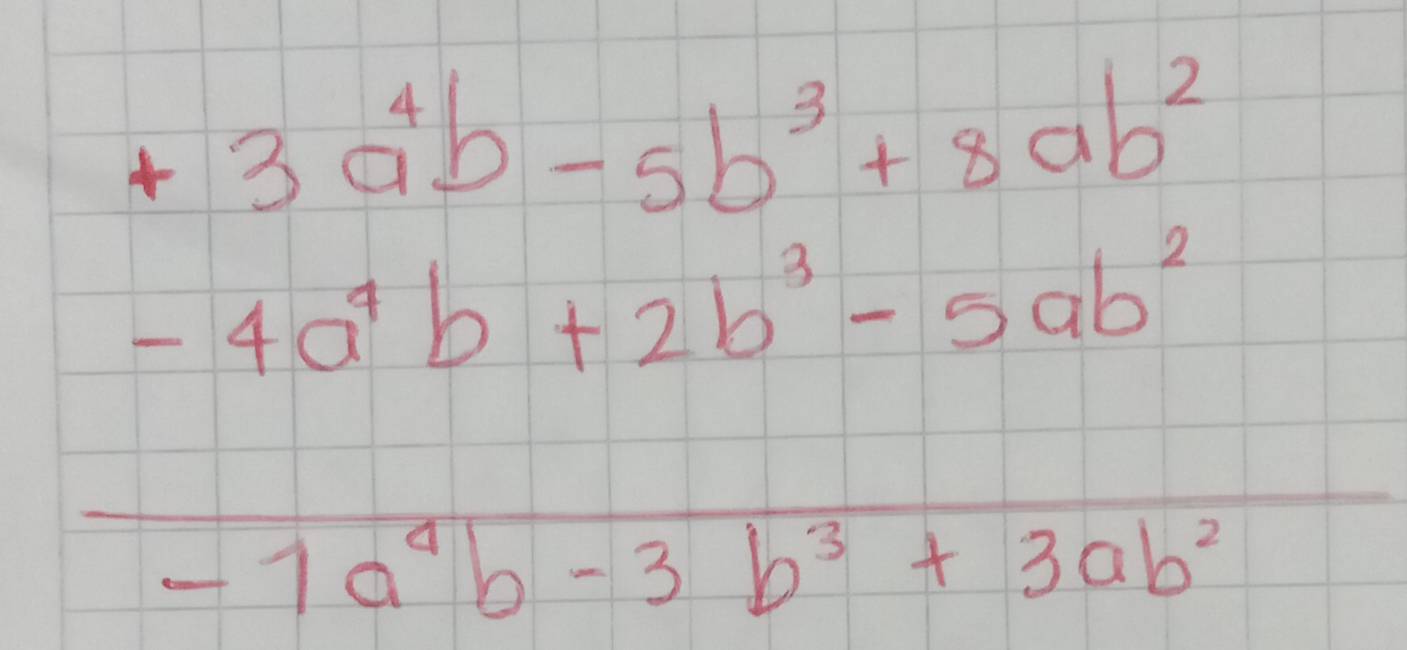 + 3a⁴b - 5b³ + 8ab²
- 4a⁴b + 2b³ - 5ab²
- 1a⁴b - 3b³ + 3ab²